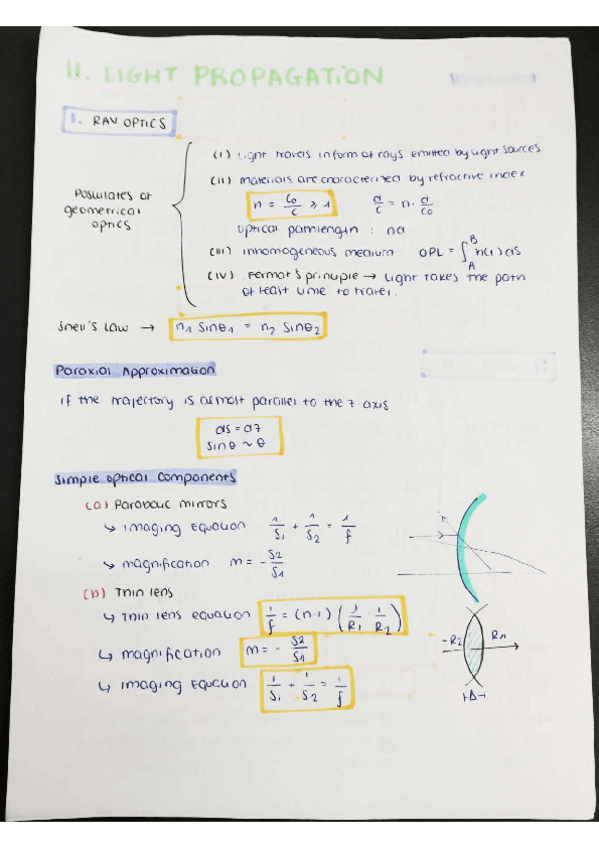 II. LIGHT PROPAGATION
1. RAY OPTICS
Postulates of geometrical optics
(i) Light travels in form of rays emitted by light sources
(ii) materials are characterized by refractive index
n = c₀/c ≥ 1   d/c = n · d/c₀
optical pathlength : nd
(iii) inhomogeneous medium : OPL = ∫_A^B n(r) ds
(iv) Fermat's principle → Light takes the path
of least time to travel.
Snell's Law → n₁ sinθ₁ = n₂ sinθ₂
Paraxial Approximation
if the trajectory is almost parallel to the z axis
ds = dz
sinθ ~ θ
Simple optical components
(a) Parabolic mirrors
↳ imaging Equation 1/S₁ + 1/S₂ = 1/f
↳ magnification m = - S2/S1
(b) Thin lens
↳ Thin lens equation 1/f = (n-1) (1/R₁ - 1/R₂)
↳ magnification m = - S2/S1
↳ imaging Equation 1/S₁ + 1/S₂ = 1/f
-R₂ R₁
Δ